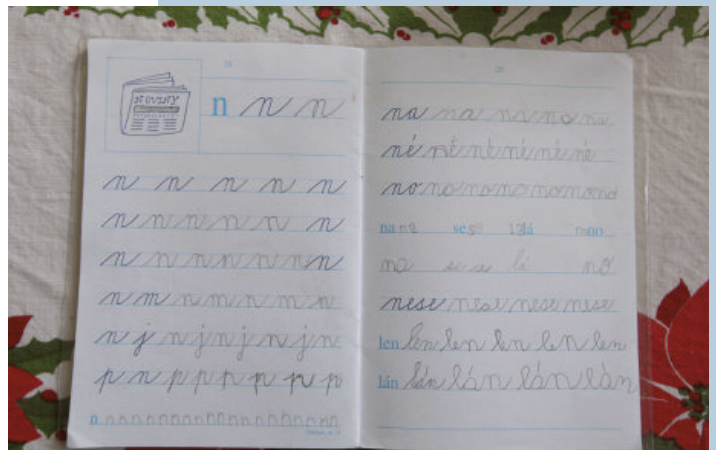 NOVINY
n n n
n n n n n
n n n n n n
n n n n n n n
n m n m n m n
n j n j n j n j n
p n p p p p p p
n n n n n n n n n n n n n n n n
na na na na na
né né né né né né
no no no no no no no
na na se se lá lá no no
na se se lá no
nese nese nese nese
len len len len len len
lán lán lán lán lán